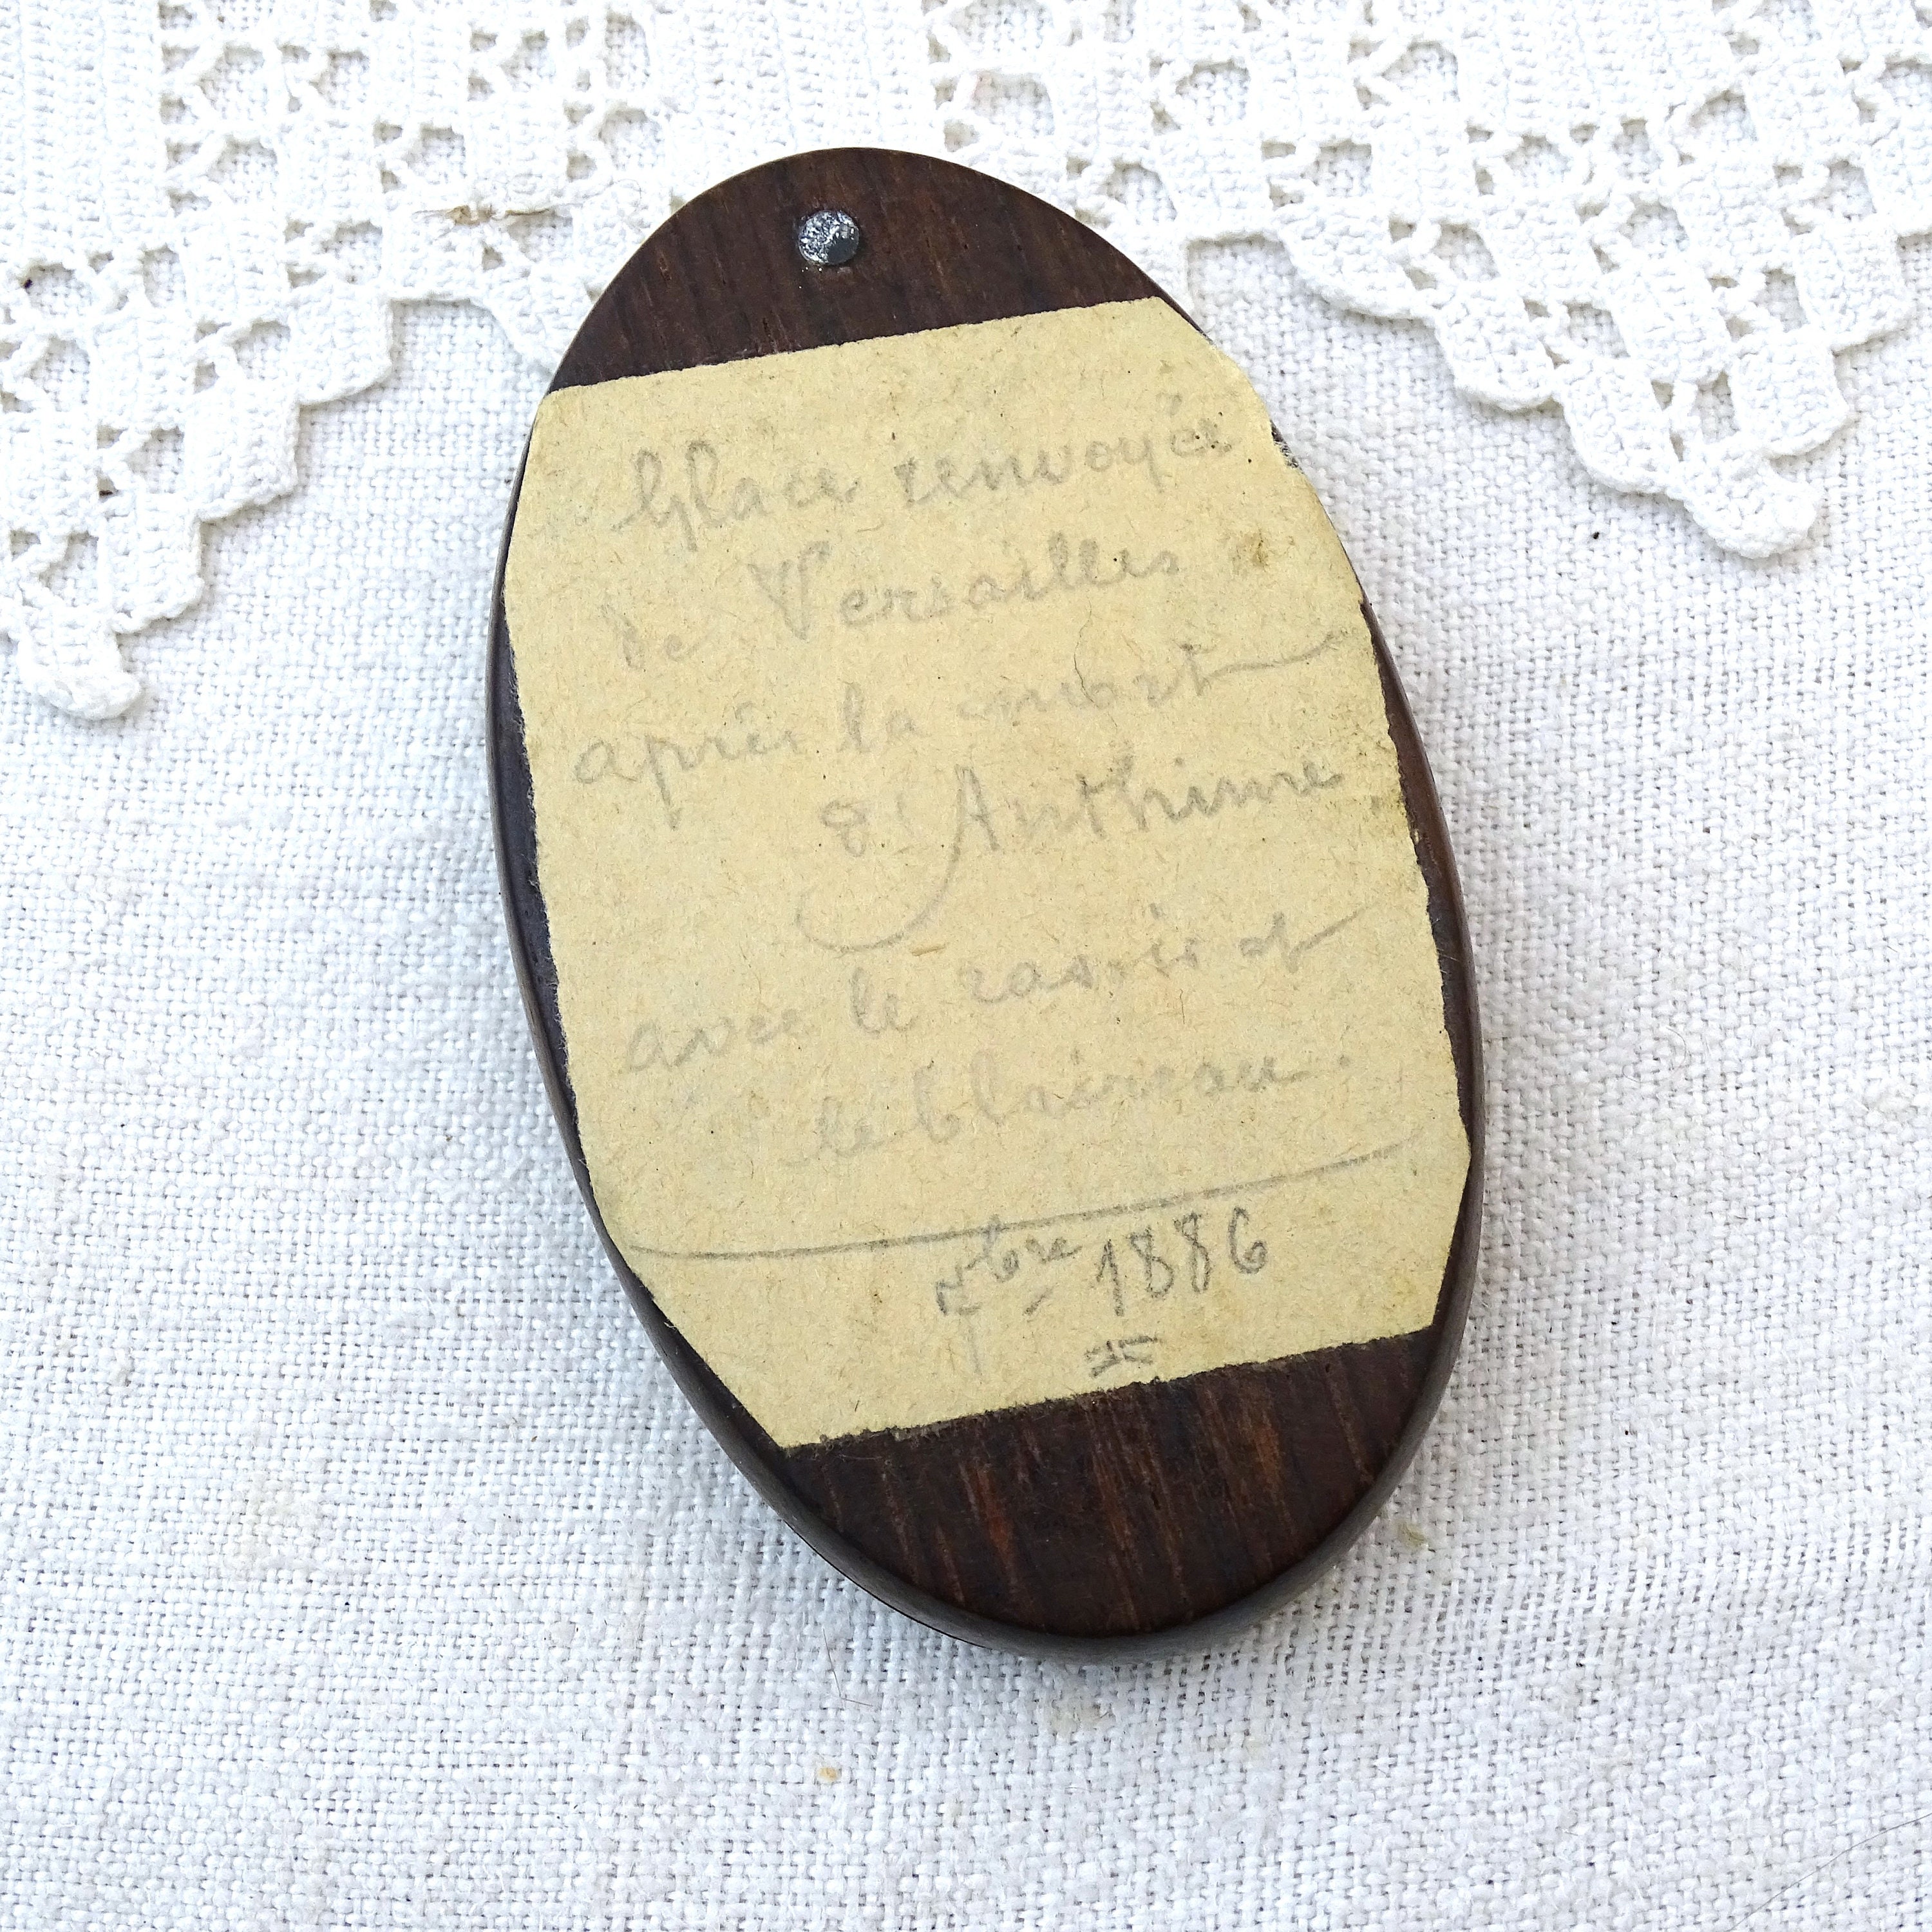 Glace renvoyée
de Versailles
après la mort
d'Anthime
avec le rasoir et
le blaireau.
7bre 1886